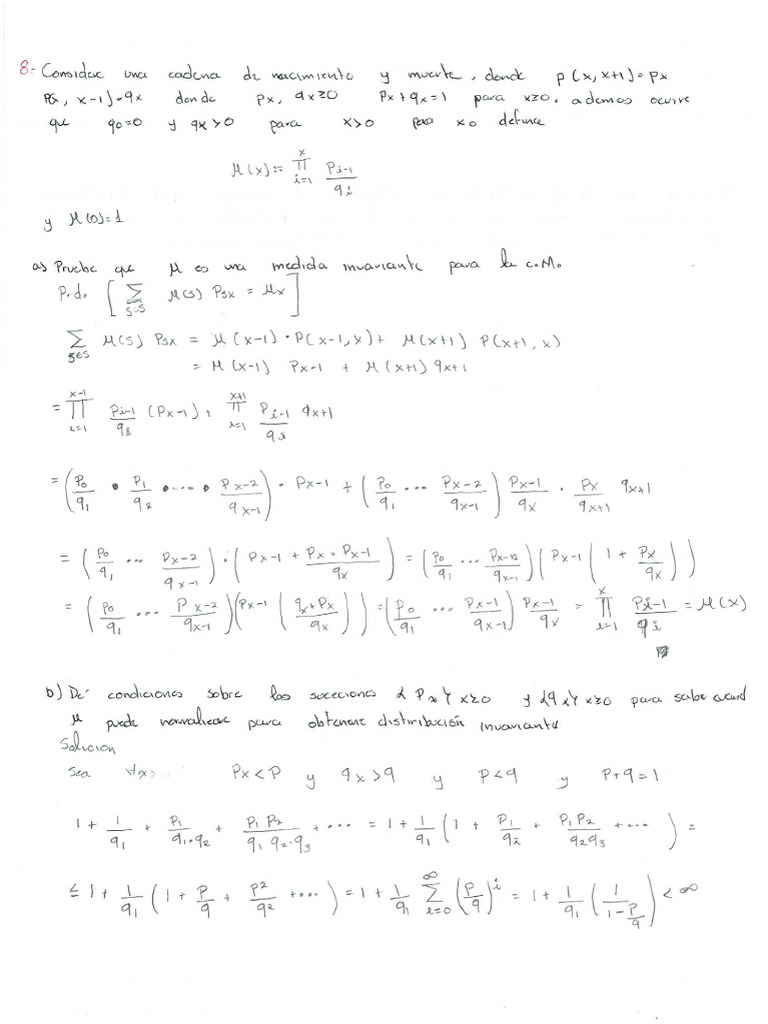 8.- Considere una cadena de nacimiento y muerte, donde p(x, x+1) = Px
P(x, x-1) = qx donde Px, qx≥0 Px+qx=1 para x≥0, ademas ocurre
que q0=0 y qx>0 para x>0 para x0 define
μ(x):= ∏_{i=1}^{x} P_{i-1}/q_i
y μ(0)=1
a) Pruebe que μ es una medida invariante para la c.M.
P.d. [ ∑_{s∈S} μ(s) Psx = μx ]
∑_{s∈S} μ(s) Psx = μ(x-1) · P(x-1, x) + μ(x+1) P(x+1, x)
= μ(x-1) Px-1 + μ(x+1) qx+1
= ∏_{i=1}^{x-1} P_{i-1}/q_i (Px-1) + ∏_{i=1}^{x+1} P_{i-1}/q_i qx+1
= (P0/q1 · P1/q2 · ... · Px-2/qx-1) · Px-1 + (P0/q1 ... Px-2/qx-1) Px-1/qx · Px/qx+1 qx+1
= (P0/q1 ... Px-2/qx-1) · (Px-1 + Px·Px-1/qx) = (P0/q1 ... Px-2/qx-1) (Px-1 (1 + Px/qx))
= (P0/q1 ... Px-2/qx-1) (Px-1 (qx+Px/qx)) = (P0/q1 ... Px-1/qx-1) Px-1/qx = ∏_{i=1}^{x} P_{i-1}/q_i = μ(x)
b) De condiciones sobre las suceciones {Px} x≥0 y {qx} x≥0 para saber cuand
μ puede normalizar para obtener distribución invariante
Solucion
Sea ∀x> Px<P y qx>q y P<q y P+q=1
1 + 1/q1 + P1/q1·q2 + P1 P2/q1 q2·q3 + ... = 1 + 1/q1 (1 + P1/q2 + P1P2/q2q3 + ...) =
≤ 1 + 1/q1 (1 + P/q + P²/q² + ...) = 1 + 1/q1 ∑_{i=0}^{∞} (P/q)^i = 1 + 1/q1 (1/(1-P/q)) < ∞